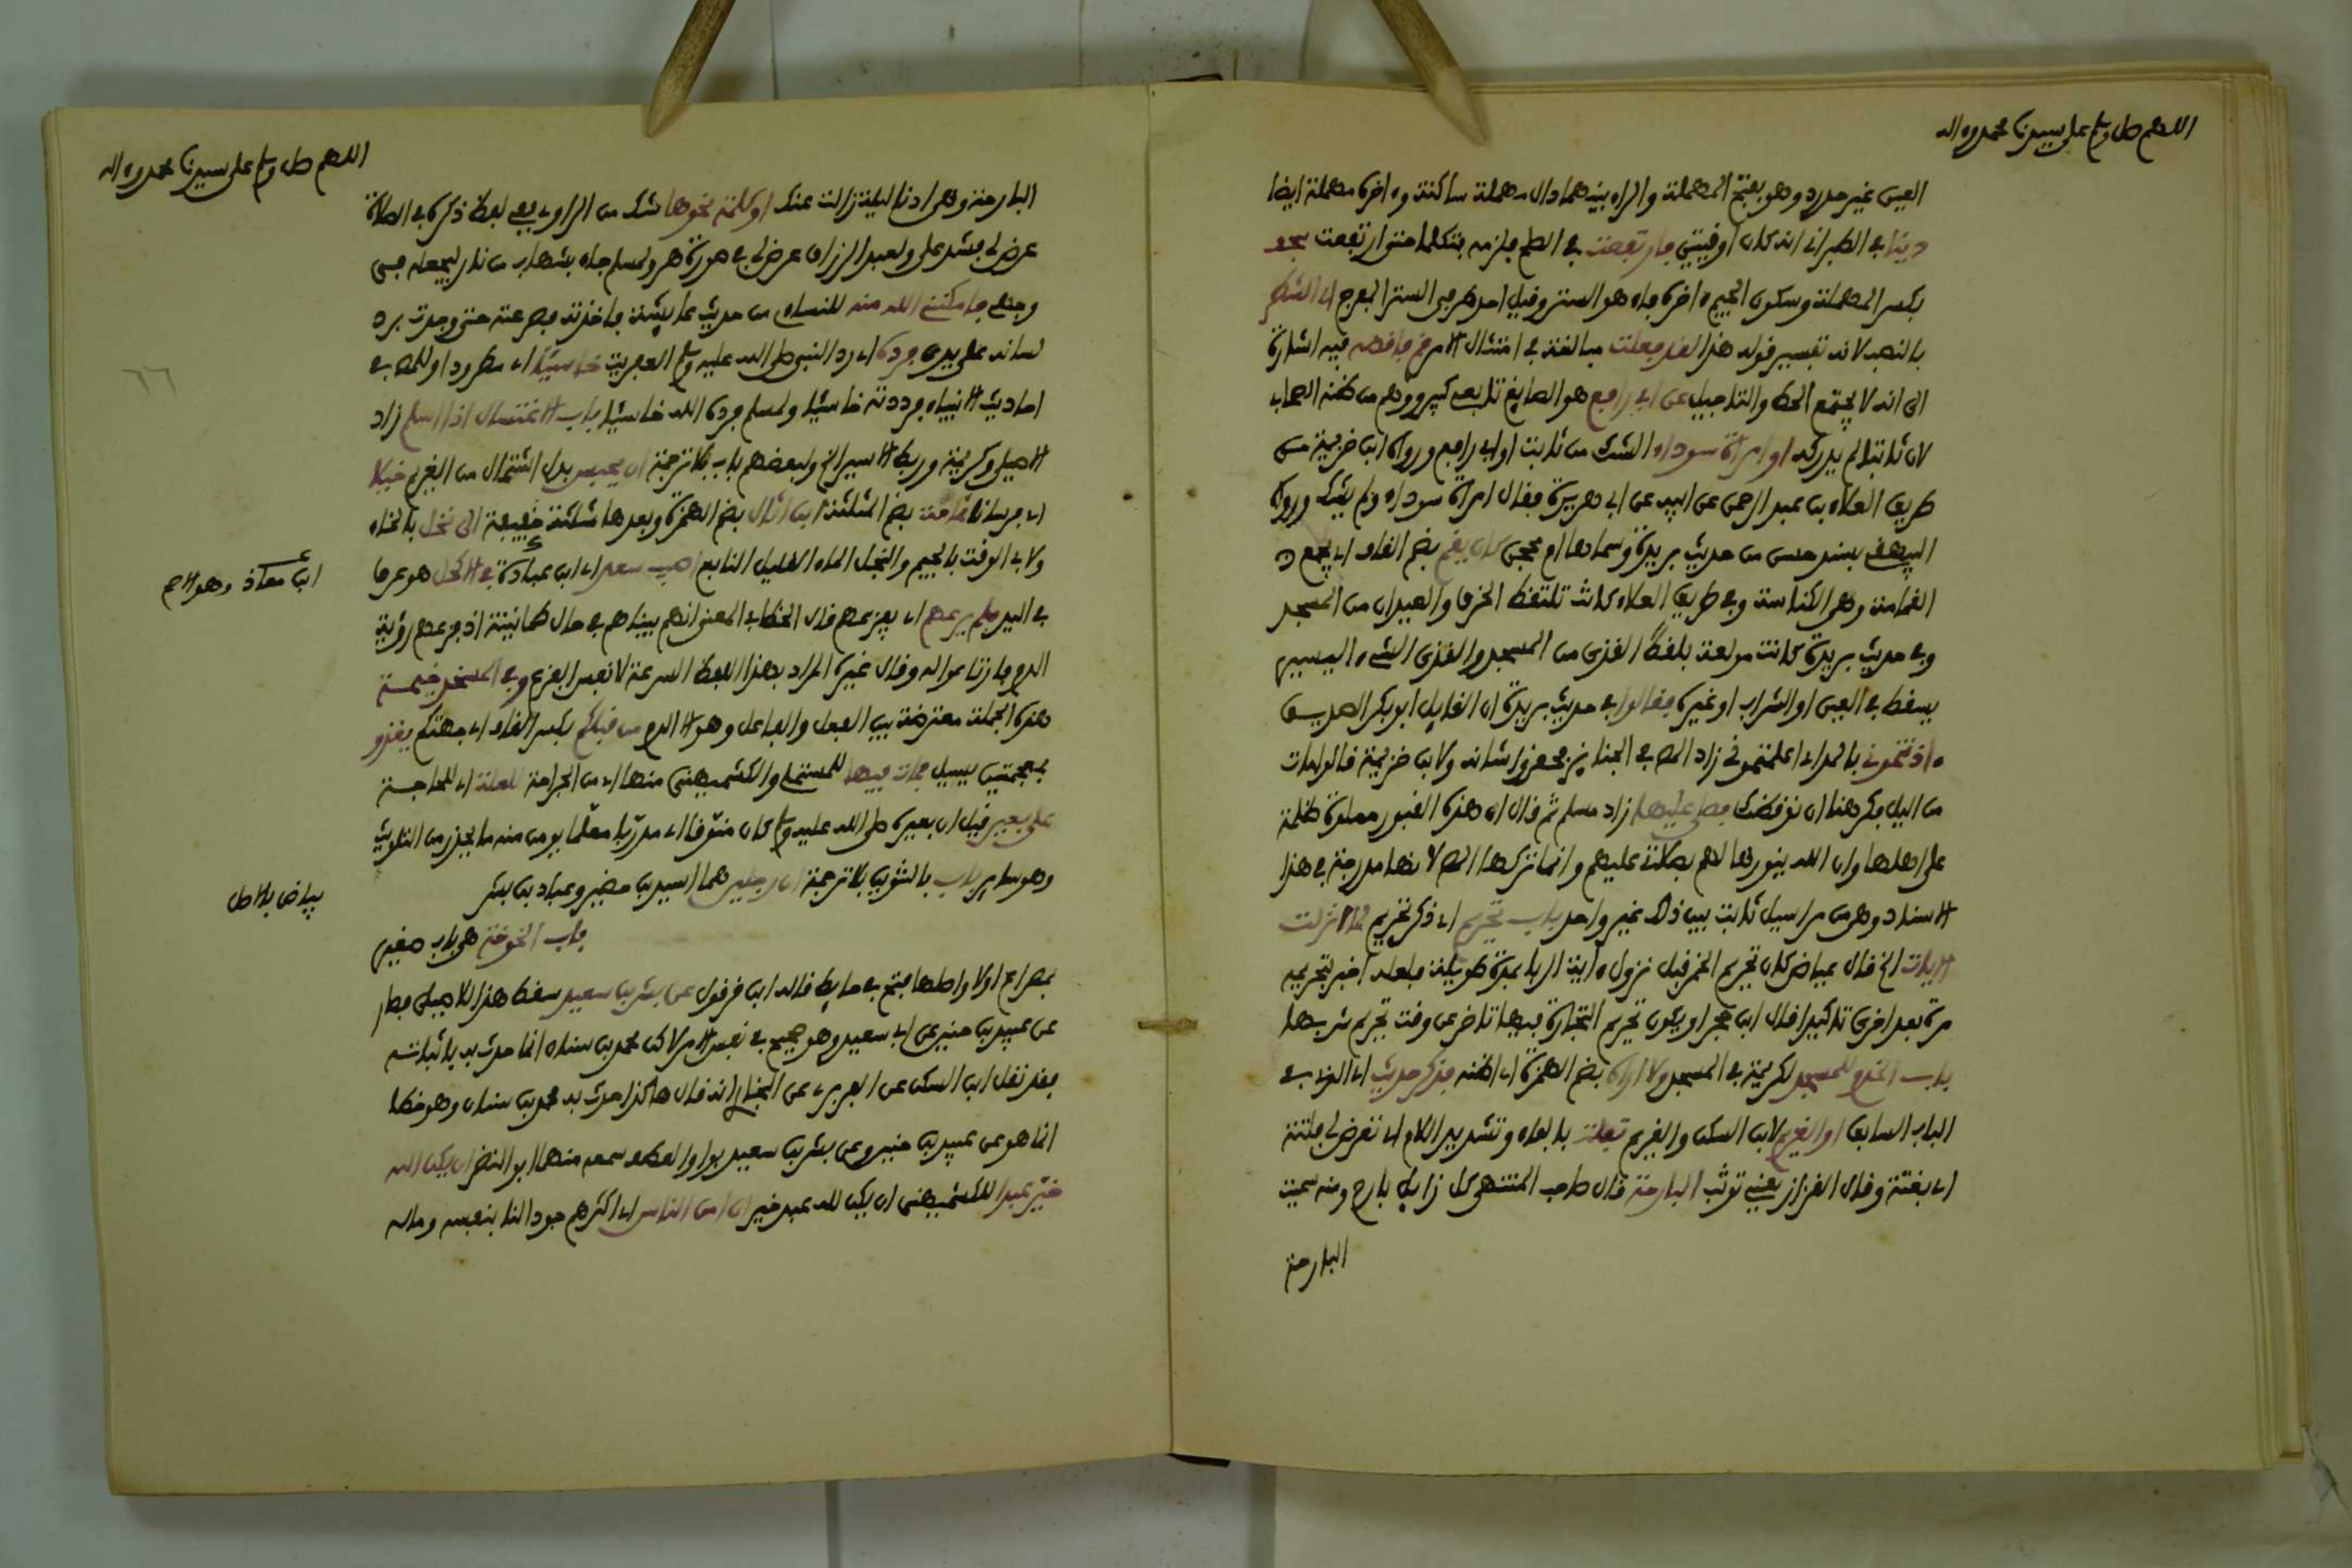 اللهم صل وسلم على سيدنا محمد وءاله
العين غير حدرد وهو بفتح المهملة والراء بينهما دال مهملة ساكنة وءاخره مهملة ايضا
دينا في الطبراني انه كان اوقيتين فارتفعت في الصلح فلزمه فتكلما حتى ارتفعت سجف
بكسر المهملة وسكون الجيم ءاخره فاء هو الستر وقيل احد طرفي الستر المفرج اي الشطر
بالنصب لانه تفسير قوله هذا لقد فعلت مبالغة في امتثال الامر قم فاقضه فيه اشارة
الى انه لا يجتمع الحط والتاجيل عن ابي رافع هو الصايغ تابعي كبير ووهم من ظنه الصحابي
لان ثابتا لم يدركه او امراة سوداء الشك من ثابت او ابي رافع ورواه ابن خزيمة من
طريق العلاء بن عبد الرحمن عن ابيه عن ابي هريرة فقال امراة سوداء ولم يشك ورواه
البيهقي بسند حسن من حديث بريدة وسماها ام محجن كان يقم بضم القاف اي يجمع
القمامة وهي الكناسة وفي طريق العلاء كانت تلتقط الخرق والعيدان من المسجد
وفي حديث بريدة كانت مولعة بلقط القذى من المسجد والقذى الشيء اليسير
يسقط في العين او الشراب او غيره فقالوا في حديث بريدة ان القايل ابو بكر الصديق
ءاذنتموني بالمد اي اعلمتموني زاد المص في الجنايز فحقروا شانه ولابن خزيمة قالوا مات
من اليل فكرهنا ان نوقظك فصلى عليها زاد مسلم ثم قال ان هذه القبور مملوءة ظلمة
على اهلها وان الله ينورها لهم بصلاتي عليهم وانما تركها المص لانها مدرجة في هذا
الاسناد وهي من مراسيل ثابت بين ذلك غير واحد باب تحريم اي ذكر تحريم لما انزلت
الايات الخ قال عياض كان تحريم الخمر قبل نزول ءاية الربا بمدة طويلة فلعله اخبر بتحريمه
مرة بعد اخرى تاكيدا قال ابن حجر او يكون تحريم التجارة فيها تاخر عن وقت تحريم شربها
باب الخدم للمسجد لكريمة في المسجد ولا اراه بضم الهمزة اي اظنه فذكر حديث اي الذي في
الباب السابق او الغريم لابن السكن والغريم تفلت بالفاء وتشديد اللام اي تعرض لي فلتة
اي بغتة وقال القزاز يعني توثب البارحة قال صاحب المنتهى كل زايل بارح ومنه سميت
البارحة
اللهم صل وسلم على سيدنا محمد وءاله
البارحة وهي ادنى ليلة زالت عنك او كلمة نحوها شك من الراوي ففي لفظ ذكره في الصلاة
عرض لي فشد علي ولعبد الرزاق عرض لي في صورة هر ولمسلم جاء بشهاب من نار ليجعله في
وجهي فامكنني الله منه للنساءي من حديث عايشة فاخذته فصرعته حتى وجدت برد
لسانه على يدي فرده اي رد النبي صلى الله عليه وسلم العفريت خاسيا اي مطرودا وللمص في
احاديث الانبياء فرددته خاسيا ولمسلم فرده الله خاسيا باب الاغتسال اذا اسلم زاد
الاصيلي وكريمة وربط الاسير الخ ولبعضهم باب بلا ترجمة ان يحبس بدل اشتمال من الغريم خيلا
اي فرسانا ثمامة بضم المثلثة ابن اثال بضم الهمزة وبعدها مثلثة خفيفة الى نخل بالخاء
ولابي الوقت بالجيم والنجل الماء القليل النابع اصيب سعد اي ابن عبادة في الاكحل هو عرق
ابن معاذ وهو الاصح
في اليد فلم يرعهم اي يفزعهم قال الخطابي المعنى انهم بينا هم في حال طمانينة اذ فزعهم رؤية
الدم فارتاعوا له وقال غيره المراد بهذا اللفظ السرعة لا نفس الفزع وفي المسجد خيمة
هذه الجملة معترضة بين الفعل والفاعل وهو الا الدم من قبلكم بكسر القاف اي جهتكم يغذو
بمعجمتين يسيل فمات فيها للمستملي والكشميهني منها اي من الجراحة للعلة اي للحاجة
على بعير قيل ان بعيره صلى الله عليه وسلم كان منوقا اي مدربا معلما يومن منه ما يحذر من التلويث
وهو ساير باب بالتنوين بلا ترجمة ان رجلين هما اسيد بن حضير وعباد بن بشر
بياض بالاصل
باب الخوخة هي باب صغير
بمصراع اولا واصلها فتح في حايط قاله ابن قرقول عن بشر بن سعيد سقط هذا للاصيلي فصار
عن عبيد بن حنين عن ابي سعيد وهو صحيح في نفس الامر لاكن محمد بن سنان انما حدث به باثباته
فقد نقل ابن السكن عن الفربري عن البخاري انه قال هاكذا حدث به محمد بن سنان وهو خطا
انما هو عن عبيد بن حنين وعن بشر بن سعيد بواو العطف سمعه منهما ابو النضر ان يكن الله
خير عبدا للكشميهني ان يكن لله عبد خير ان امن الناس اي اكثرهم جودا لنا بنفسه وماله